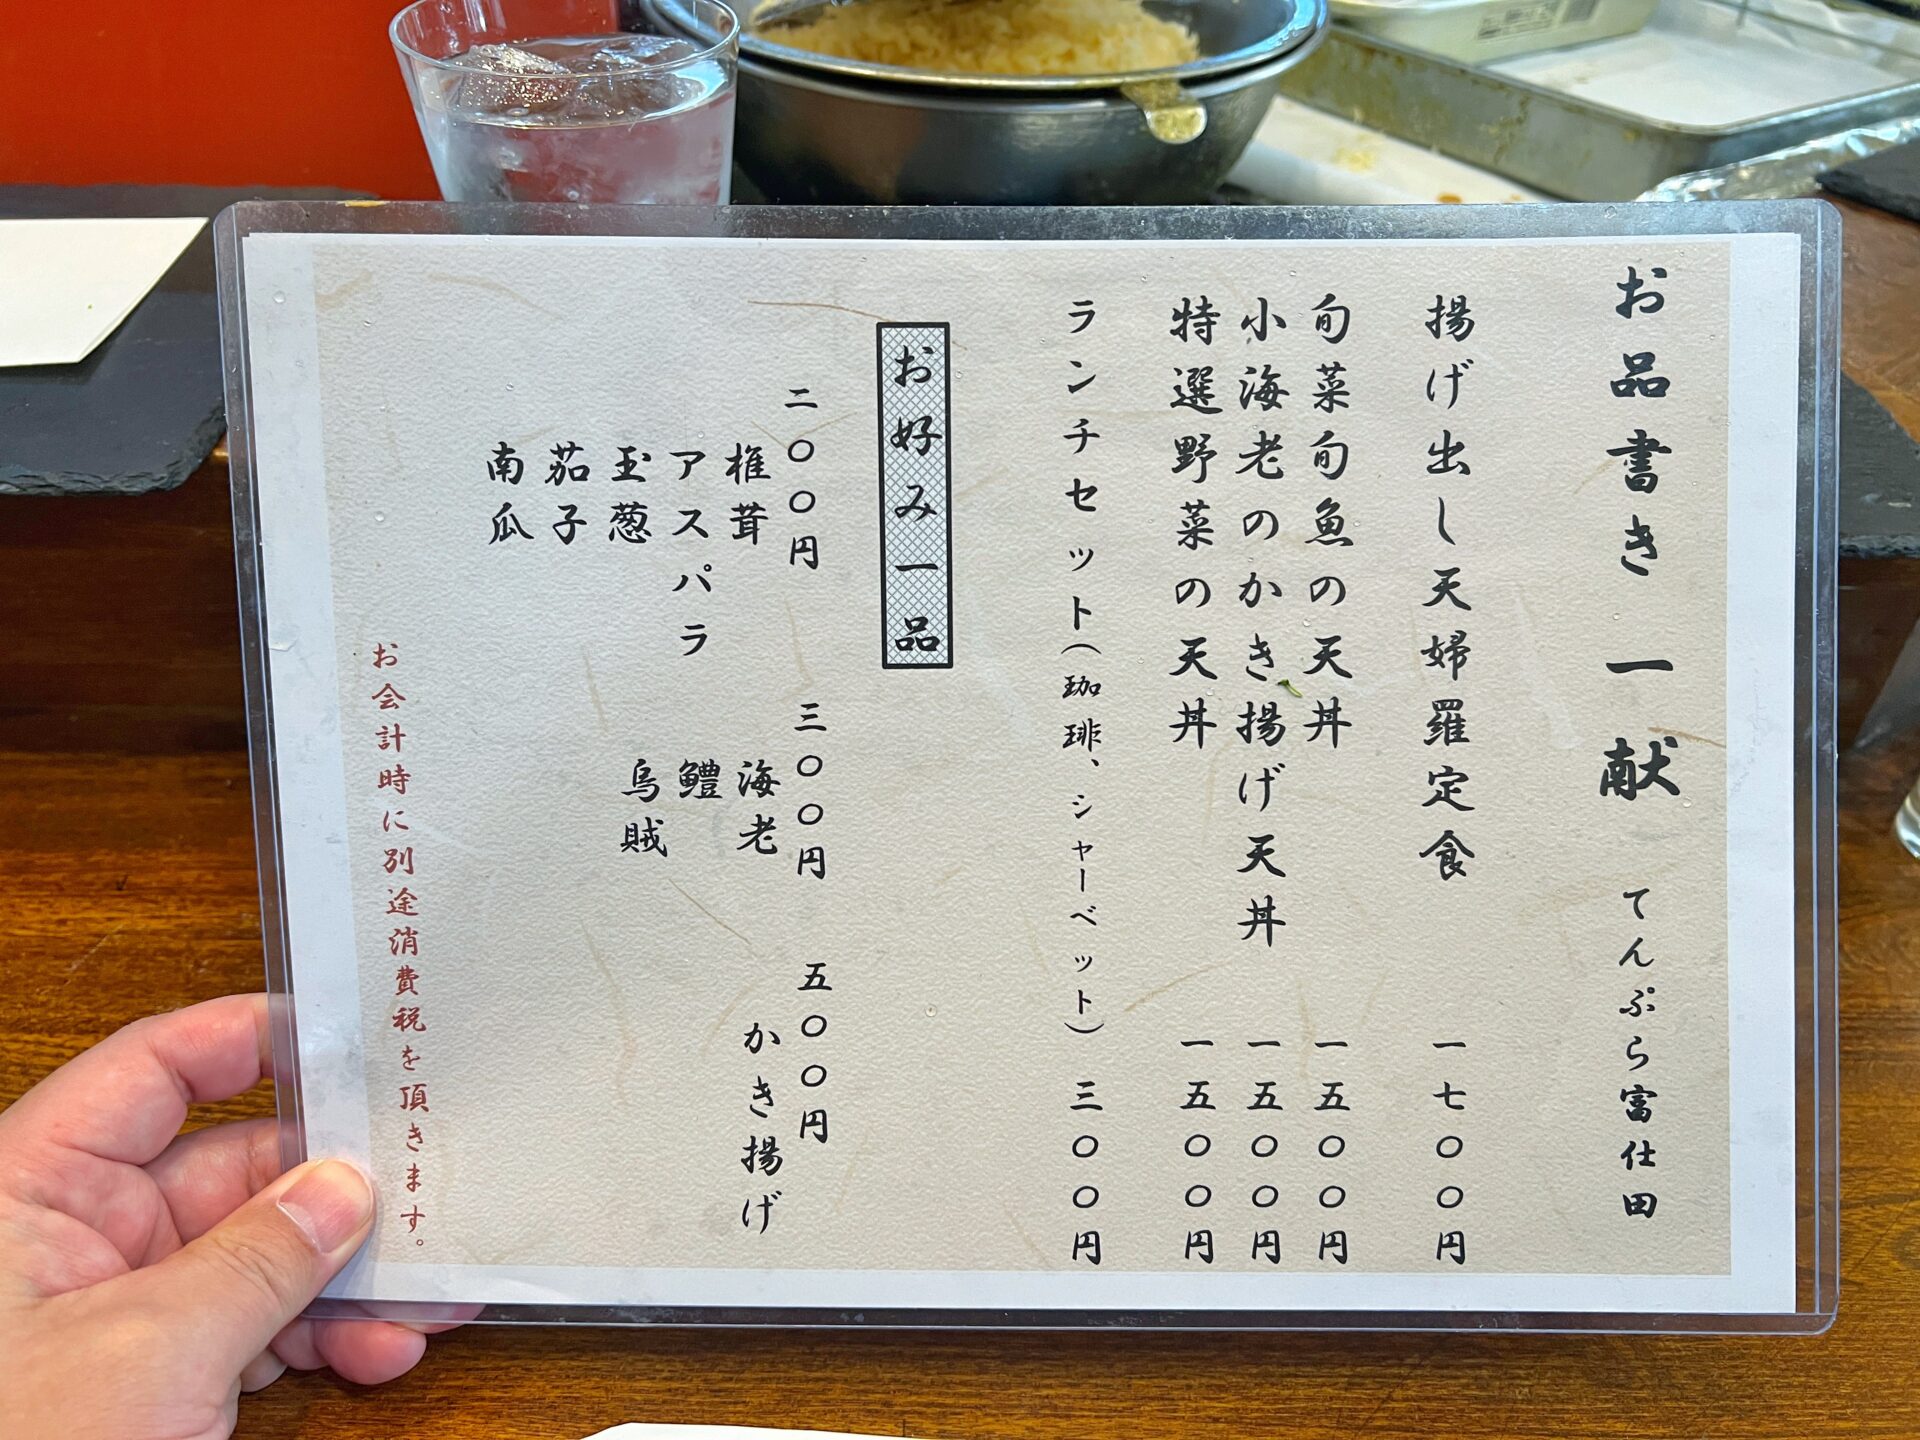 お品書き 一献 てんぷら富仕田
揚げ出し天婦羅定食 一七〇〇円
旬菜旬魚の天丼 一五〇〇円
小海老のかき揚げ天丼 一五〇〇円
特選野菜の天丼 一五〇〇円
ランチセット(珈琲、シャーベット) 三〇〇円
お好み一品
二〇〇円
椎茸
アスパラ
玉葱
茄子
南瓜
三〇〇円
海老
鱧
烏賊
五〇〇円
かき揚げ
お会計時に別途消費税を頂きます。